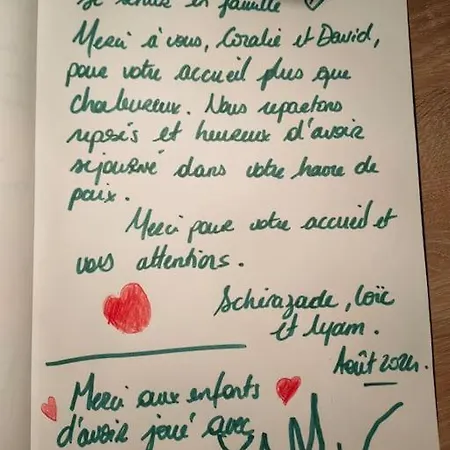 se sentir en famille
Merci à vous, Coralie et David,
pour votre accueil plus que
chaleureux. Nous repartons
reposés et heureux d'avoir
séjourné dans votre havre de
paix.
Merci pour votre accueil et
vos attentions.
Schérazade, Loïc
et Lyam.
Août 2024.
Merci aux enfants
d'avoir joué avec